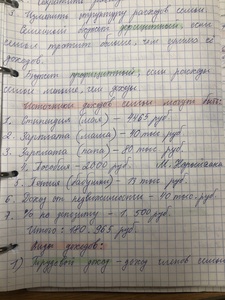 3. Изменить структуру расходов семьи.
Семейный бюджет дефицитный, если
семья тратит больше, чем сумма её
доходов.
Бюджет профицитный, если расходы
семьи меньше, чем доходы.
Источники доходов семьи могут быть:
1. Стипендия (моя) - 4465 руб.
2. Зарплата (мама) - 40 тыс руб.
3. Зарплата (папа) - 80 тыс руб.
Пособия - 2000 руб.
5. Пенсия (бабушка) - 13 тыс руб.
6. Доход от недвижимости - 40 тыс. руб.
7. % по депозиту - 1.500 руб.
Итого = 180.965 руб.
Виды доходов:
1) Трудовой доход - доход членов семьи